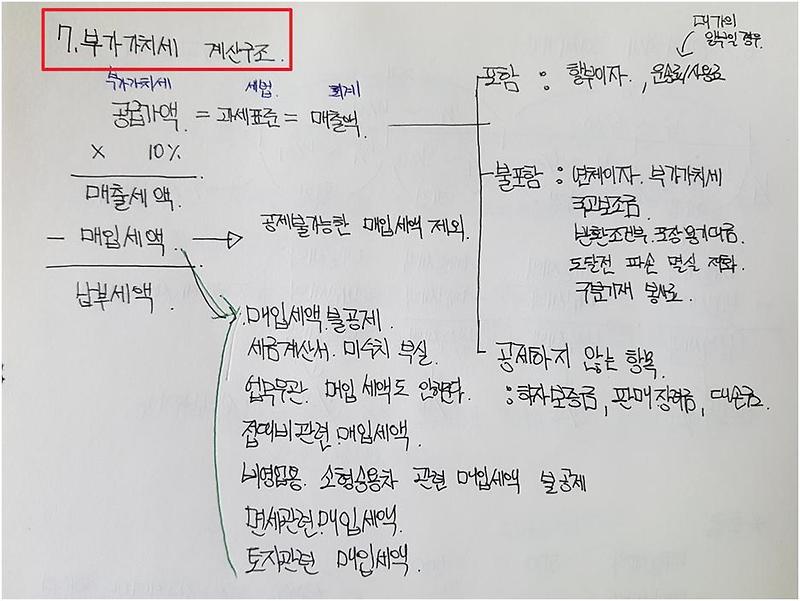 7. 부가가치세 계산구조.
부가가치세 세법. 회계
공급가액 = 과세표준 = 매출액.
× 10%
매출세액.
- 매입세액. → 공제불가능한 매입세액 제외.
납부세액.
대가의
일부일 경우.
포함 : 할부이자. , 운송료/사용료
불포함 : 연체이자. 부가가치세
국고보조금.
반환조건부. 포장용기대금.
도달전 파손 멸실 재화.
구분기재 봉사료.
공제하지 않는 항목.
: 하자보증금, 판매장려금, 대손금.
매입세액.불공제.
세금계산서. 미수취 부실.
업무무관. 매입 세액도 안된다.
접대비관련.매입세액.
비영업용. 소형승용차 관련 매입세액 불공제
면세관련.매입세액.
토지관련 매입세액.